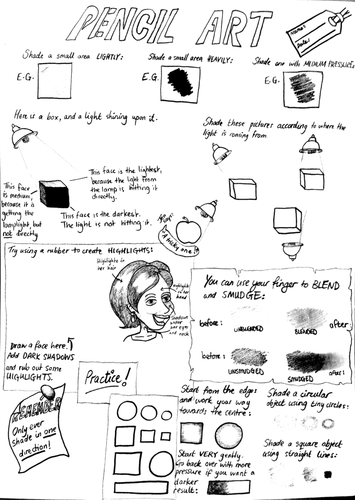 PENCIL ART
Name:
Date:
Shade a small area LIGHTLY:
E.G.
Shade a small area HEAVILY:
E.G.
Shade one with MEDIUM PRESSURE:
E.G.
Here is a box, and a light shining upon it.
This face is the lightest,
because the light from
the lamp is hitting it
directly.
This face
is medium,
because it is
getting the
lamplight, but
not directly
This face is the darkest.
The light is not hitting it.
Shade these pictures according to where the
light is coming from
A tricky one!
Try using a rubber to create HIGHLIGHTS:
Highlights in
her hair
Highlights in
her
Shadows under
her eyes
and neck
Draw a face here.
Add DARK SHADOWS
and rub out some
HIGHLIGHTS.
Practice!
You can use your finger to BLEND
and SMUDGE:
before:
UNBLENDED
BLENDED
after:
before:
UNSMUDGED
SMUDGED
after:
REMEMBER
Only ever
shade in one
direction!
Start from the edges
and work your way
towards the centre:
Start VERY gently.
Go back over with more
pressure if you want a
darker
result:
Shade a circular
object using tiny circles:
Shade a square object
using straight lines: